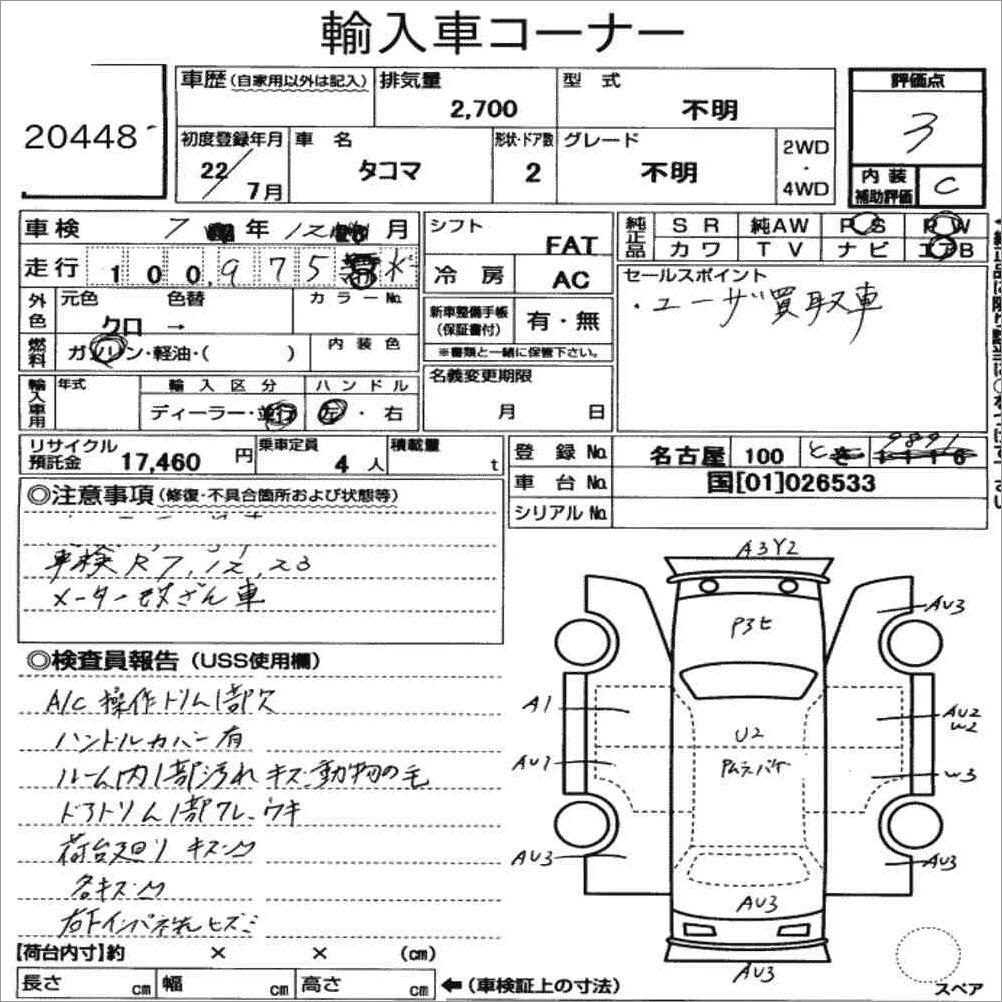 輸入車コーナー
20448
車歴(自家用以外は記入) 排気量 2,700 型 式 不明 評価点 3
初度登録年月 22/7月 車 名 タコマ 形状・ドア数 2 グレード 不明 2WD・4WD 内装補助評価 C
車検 7 年 12 月 シフト FAT 純正品 SR 純AW PS PW
走行 100,975 K 冷 房 AC カワ TV ナビ エアB
外色 元色 クロ → 色替 カラーNo. 新車整備手帳(保証書付) 有・無 セールスポイント
・ユーザ買取車
燃料 ガソリン・軽油・( ) 内装色 ※書類と一緒に保管下さい。
輸入車用 年式 輸入区分 ディーラー・並行 ハンドル 左・右 名義変更期限 月 日
リサイクル預託金 17,460 円 乗車定員 4 人 積載量 t 登 録 No. 名古屋 100 と 9891
車 台 No. 国[01]026533
シリアル No.
◎注意事項(修復・不具合箇所および状態等)
車検 R7,12,23
メーター改ざん車
◎検査員報告(USS使用欄)
A/C 操作トリム1部欠
ハンドルカバー有
ルーム内1部汚れ キズ 動物の毛
ドアトリム1部ワレ、ウキ
荷台廻り キズ凹
各キズ凹
右下インパネ洗 ヒズミ
【荷台内寸】約 × × (cm)
長さ cm 幅 cm 高さ cm ←(車検証上の寸法)
A3Y2
AU3
P3ヒ
A1
U2
AU2
W2
AU1
W3
AU3
AU3
AU3
AU3
スペア